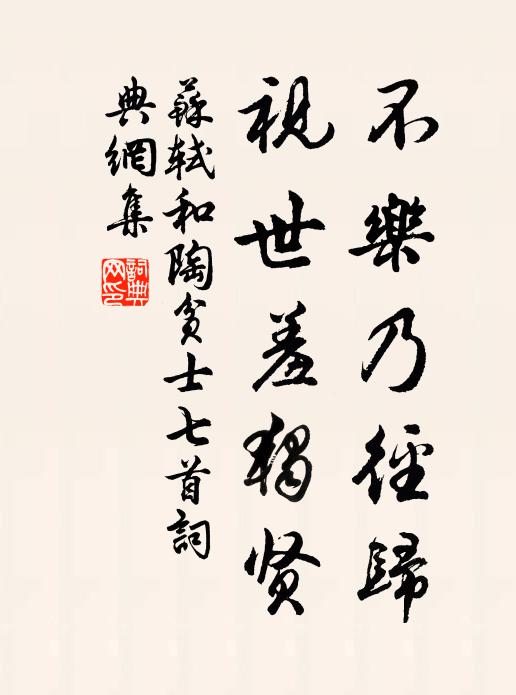 不樂乃徑歸
視世羞獨贤
蘇軾和陶贫士七首詞
典網集
詞典
网印